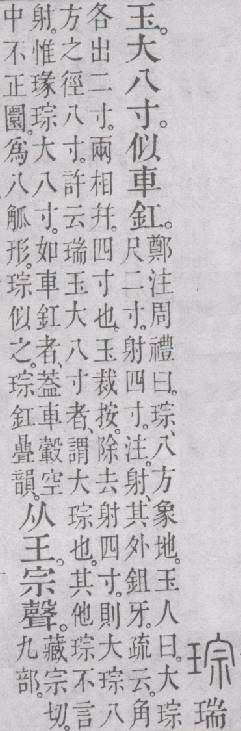 琮瑞
玉。大八寸。似車釭。鄭注周禮曰。琮、八方象地。玉人曰。大琮
尺二寸。射四寸。注。射、其外鉏牙。疏云。角
各出二寸。兩相幷。四寸也。玉裁按。除去射四寸。則大琮八
方之徑八寸。許云瑞玉大八寸者。謂大琮也。其他琮不言
射。惟瑑琮大八寸。如車釭者、蓋車轂空
中不正圜。爲八觚形。琮似之。琮釭曡韻。从王。宗聲。藏宗切。
九部。